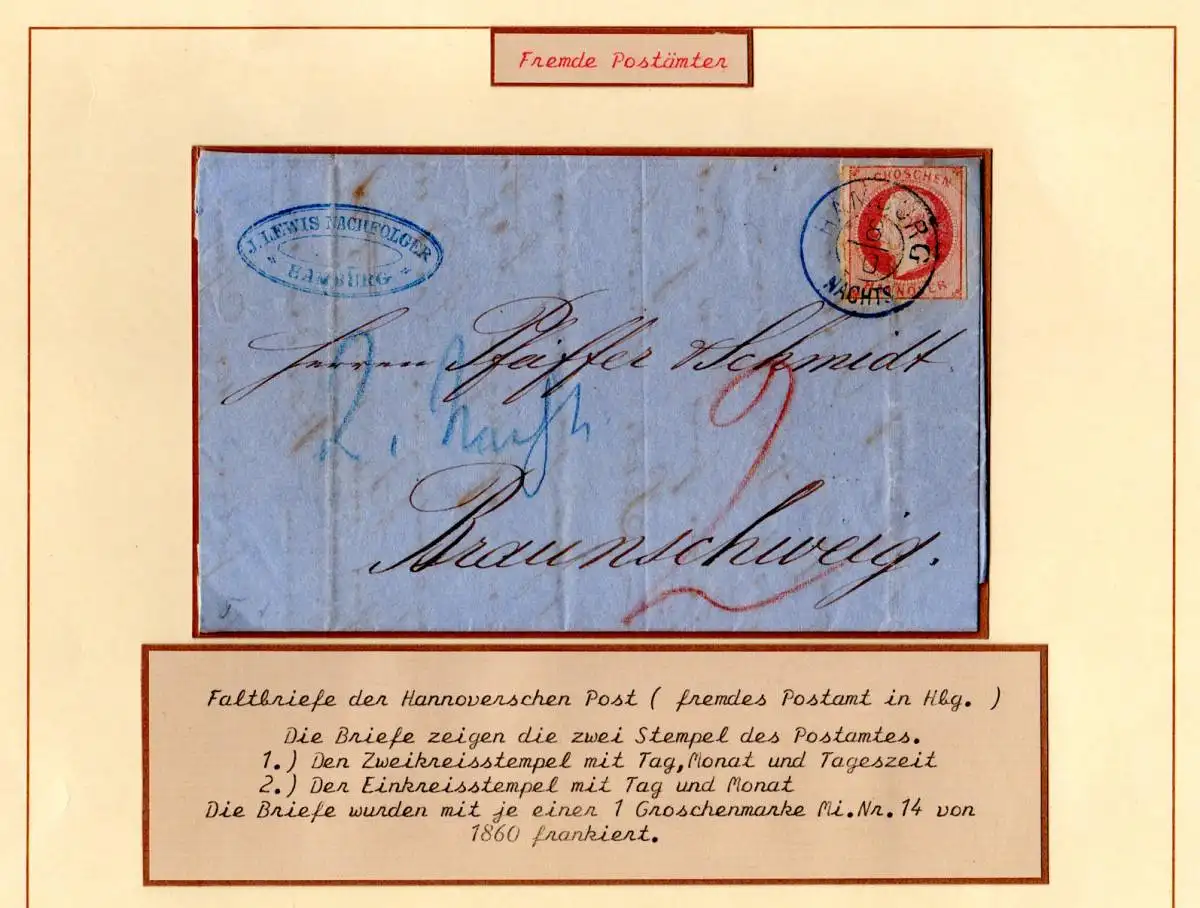 Fremde Postämter
J. LEWIS NACHFOLGER
HAMBURG
GROSCHEN
HAMBURG
NACHTS
HANNOVER
Herren Pfeiffer & Schmidt
2.
2
Braunschweig.
Faltbriefe der Hannoverschen Post ( fremdes Postamt in Hbg. )
Die Briefe zeigen die zwei Stempel des Postamtes.
1.) Den Zweikreisstempel mit Tag,Monat und Tageszeit
2.) Der Einkreisstempel mit Tag und Monat
Die Briefe wurden mit je einer 1 Groschenmarke Mi.Nr.14 von
1860 frankiert.